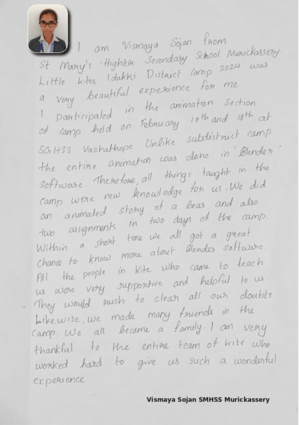 I am Vismaya Sojan from
St Mary's Higher Secondary School Murickassery.
Little kites Idukki District camp 2024 was
a very beautiful experience for me
I participated in the animation section
of camp held on February 17th and 18th at
SGHSS Vazhathope Unlike subdistrict camp
the entire animation was done in 'Blender'
software Therefore, all things taught in the
camp were new knowledge for us. We did
an animated story of a bear and also
two assignments in two days of the camp.
Within a short time we all got a great
chance to know more about Blender software.
All the people in kite who came to teach
us were very supportive and helpful to us
They would rush to clear all our doubts
Likewise, we made many friends in the
camp. We all became a family. I am very
thankful to the entire team of kite who
worked hard to give us such a wonderful
experience
Vismaya Sojan SMHSS Murickassery